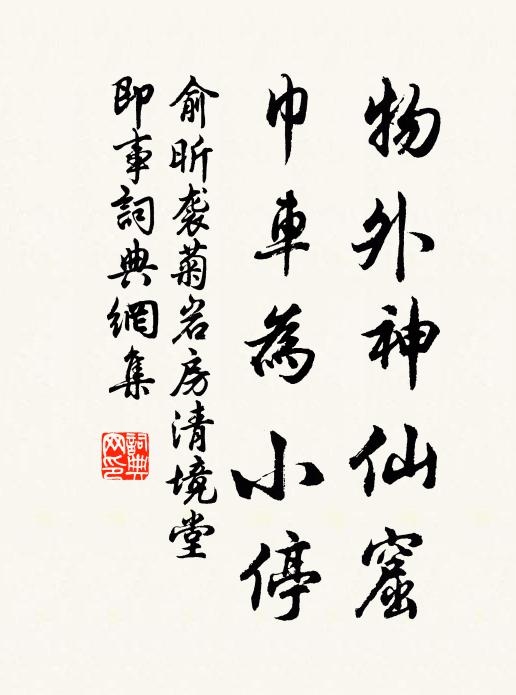 物外神仙窟
巾車為小停
俞昕袭菊岩房清境堂
即事詞典網集
詞典網印